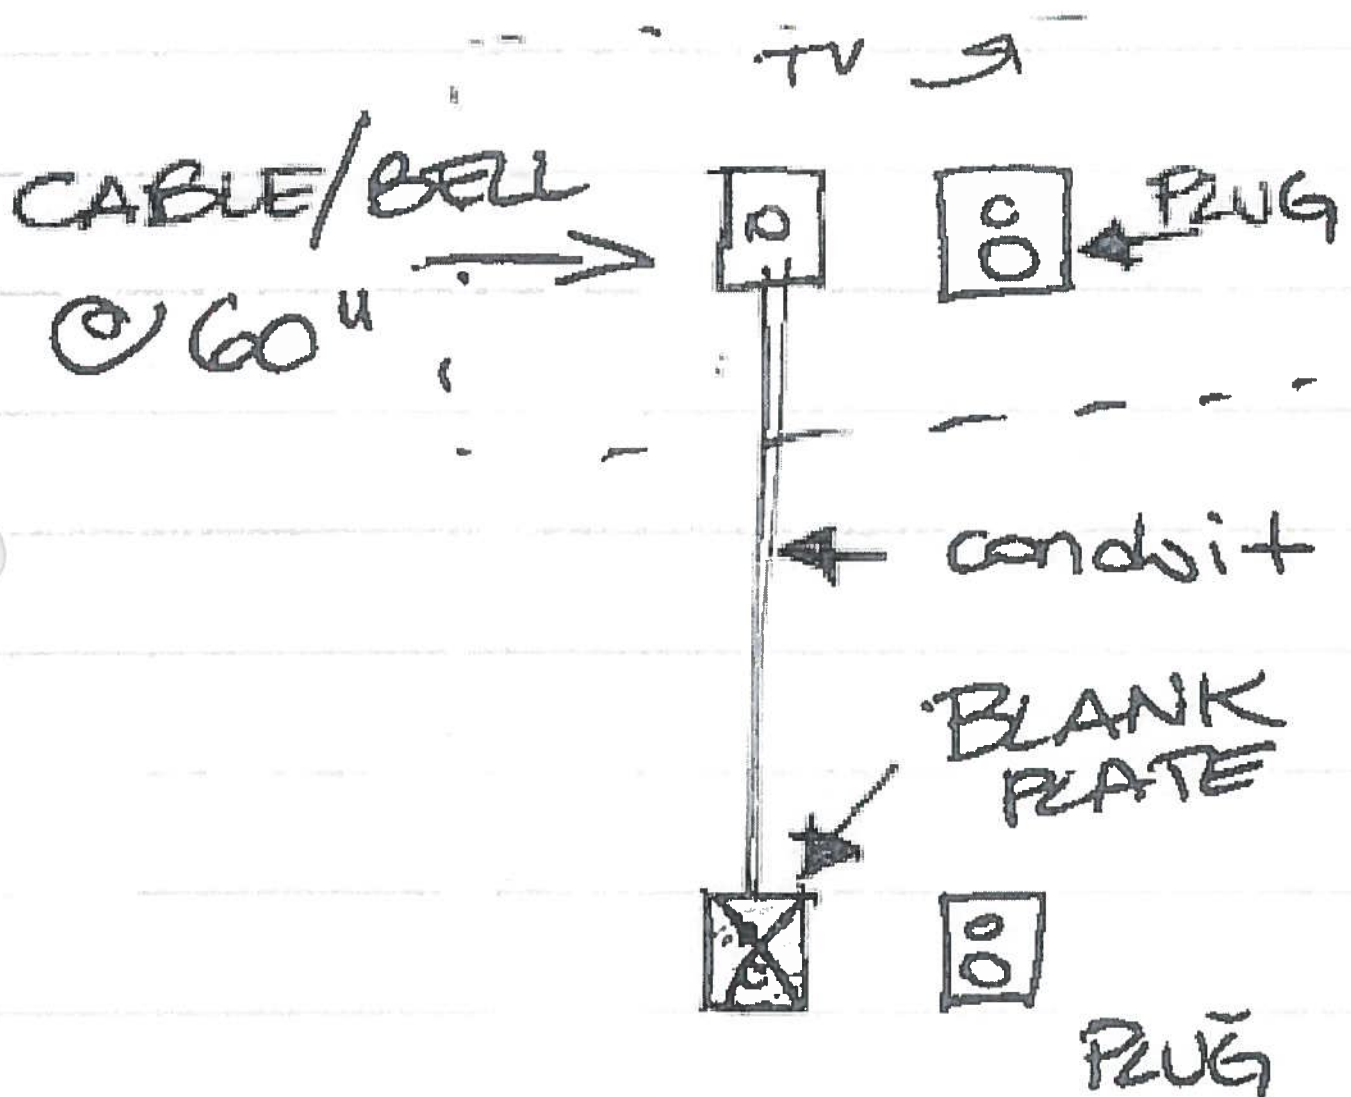 TV
CABLE/BELL
@ 60"
PLUG
conduit
BLANK
PLATE
PLUG